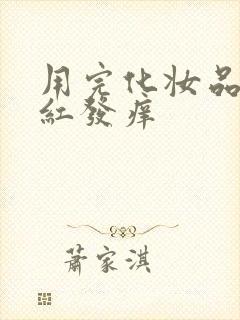 用完化妆品
紅發痒
蕭家淇